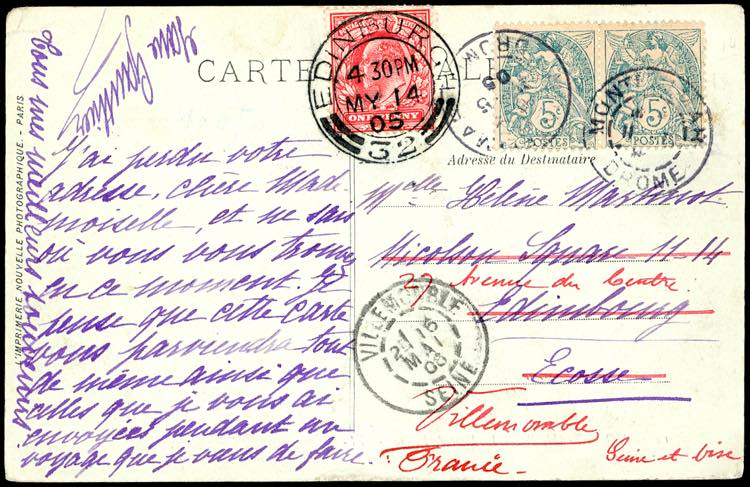 CARTE
EDINBURGH
4 30PM
MY 14
05
32
ONE PENNY
5c
POSTES
5c
POSTES
DROME
Adresse du Destinataire
L'IMPRIMERIE NOUVELLE PHOTOGRAPHIQUE. - PARIS
Tous mes meilleurs souvenirs
J'ai perdu votre
adresse, chère Made
moiselle, et ne sais
où vous vous trouvez
en ce moment. Je
pense que cette carte
vous parviendra tout
de même ainsi que
celles que je vous ai
envoyées pendant un
voyage que je viens de faire.
Melle Hélène
Nicolson Square 11-14
37 Avenue du Centre
Edimbourg
Ecosse
Villemomble
Seine et Oise
France
VILLEMOMBLE
MAI
05
SEINE